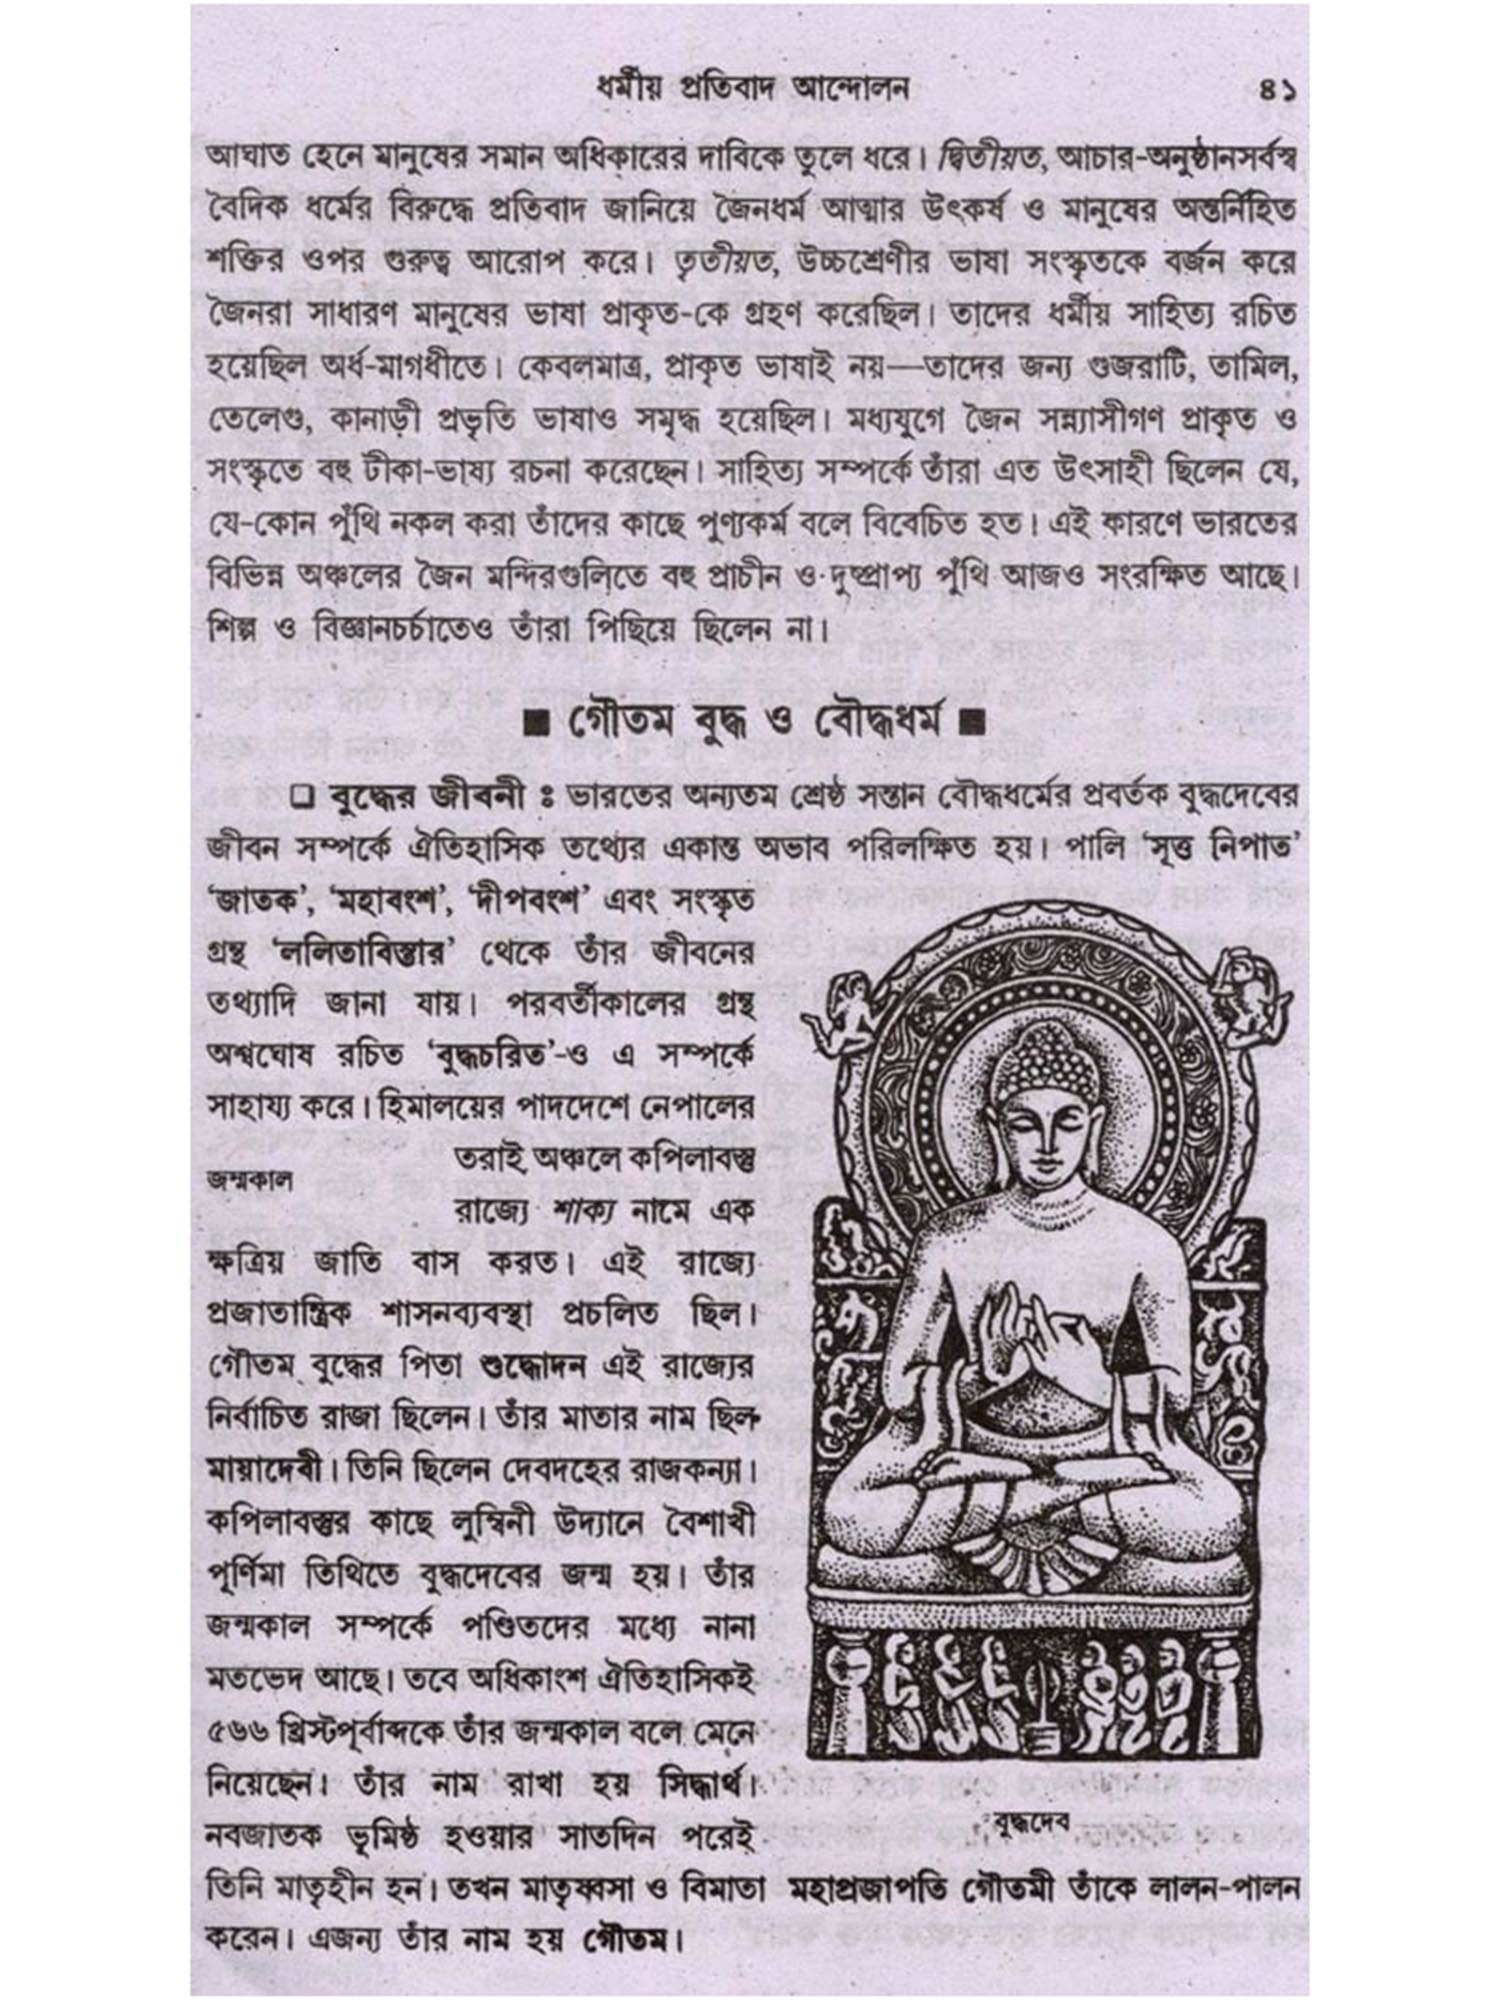 ধর্মীয় প্রতিবাদ আন্দোলন ৪১
আঘাত হেনে মানুষের সমান অধিকারের দাবিকে তুলে ধরে। দ্বিতীয়ত, আচার-অনুষ্ঠানসর্বস্ব
বৈদিক ধর্মের বিরুদ্ধে প্রতিবাদ জানিয়ে জৈনধর্ম আত্মার উৎকর্ষ ও মানুষের অন্তর্নিহিত
শক্তির ওপর গুরুত্ব আরোপ করে। তৃতীয়ত, উচ্চশ্রেণীর ভাষা সংস্কৃতকে বর্জন করে
জৈনরা সাধারণ মানুষের ভাষা প্রাকৃত-কে গ্রহণ করেছিল। তাদের ধর্মীয় সাহিত্য রচিত
হয়েছিল অর্ধ-মাগধীতে। কেবলমাত্র, প্রাকৃত ভাষাই নয়—তাদের জন্য গুজরাটি, তামিল,
তেলেগু, কানাড়ী প্রভৃতি ভাষাও সমৃদ্ধ হয়েছিল। মধ্যযুগে জৈন সন্ন্যাসীগণ প্রাকৃত ও
সংস্কৃতে বহু টীকা-ভাষ্য রচনা করেছেন। সাহিত্য সম্পর্কে তাঁরা এত উৎসাহী ছিলেন যে,
যে-কোন পুঁথি নকল করা তাঁদের কাছে পুণ্যকর্ম বলে বিবেচিত হত। এই কারণে ভারতের
বিভিন্ন অঞ্চলের জৈন মন্দিরগুলিতে বহু প্রাচীন ও দুষ্প্রাপ্য পুঁথি আজও সংরক্ষিত আছে।
শিল্প ও বিজ্ঞানচর্চাতেও তাঁরা পিছিয়ে ছিলেন না।
■ গৌতম বুদ্ধ ও বৌদ্ধধর্ম ■
❑ বুদ্ধের জীবনী ঃ ভারতের অন্যতম শ্রেষ্ঠ সন্তান বৌদ্ধধর্মের প্রবর্তক বুদ্ধদেবের
জীবন সম্পর্কে ঐতিহাসিক তথ্যের একান্ত অভাব পরিলক্ষিত হয়। পালি ‘সূত্ত নিপাত’
‘জাতক’, ‘মহাবংশ’, ‘দীপবংশ’ এবং সংস্কৃত
গ্রন্থ ‘ললিতাবিস্তার’ থেকে তাঁর জীবনের
তথ্যাদি জানা যায়। পরবর্তীকালের গ্রন্থ
অশ্বঘোষ রচিত ‘বুদ্ধচরিত’-ও এ সম্পর্কে
সাহায্য করে। হিমালয়ের পাদদেশে নেপালের
তরাই অঞ্চলে কপিলাবস্তু
জন্মকাল
রাজ্যে শাক্য নামে এক
ক্ষত্রিয় জাতি বাস করত। এই রাজ্যে
প্রজাতান্ত্রিক শাসনব্যবস্থা প্রচলিত ছিল।
গৌতম বুদ্ধের পিতা শুদ্ধোদন এই রাজ্যের
নির্বাচিত রাজা ছিলেন। তাঁর মাতার নাম ছিল
মায়াদেবী। তিনি ছিলেন দেবদহের রাজকন্যা।
কপিলাবস্তুর কাছে লুম্বিনী উদ্যানে বৈশাখী
পূর্ণিমা তিথিতে বুদ্ধদেবের জন্ম হয়। তাঁর
জন্মকাল সম্পর্কে পণ্ডিতদের মধ্যে নানা
মতভেদ আছে। তবে অধিকাংশ ঐতিহাসিকই
৫৬৬ খ্রিস্টপূর্বাব্দকে তাঁর জন্মকাল বলে মেনে
নিয়েছেন। তাঁর নাম রাখা হয় সিদ্ধার্থ।
নবজাতক ভূমিষ্ঠ হওয়ার সাতদিন পরেই
বুদ্ধদেব
তিনি মাতৃহীন হন। তখন মাতৃষ্বসা ও বিমাতা মহাপ্রজাপতি গৌতমী তাঁকে লালন-পালন
করেন। এজন্য তাঁর নাম হয় গৌতম।